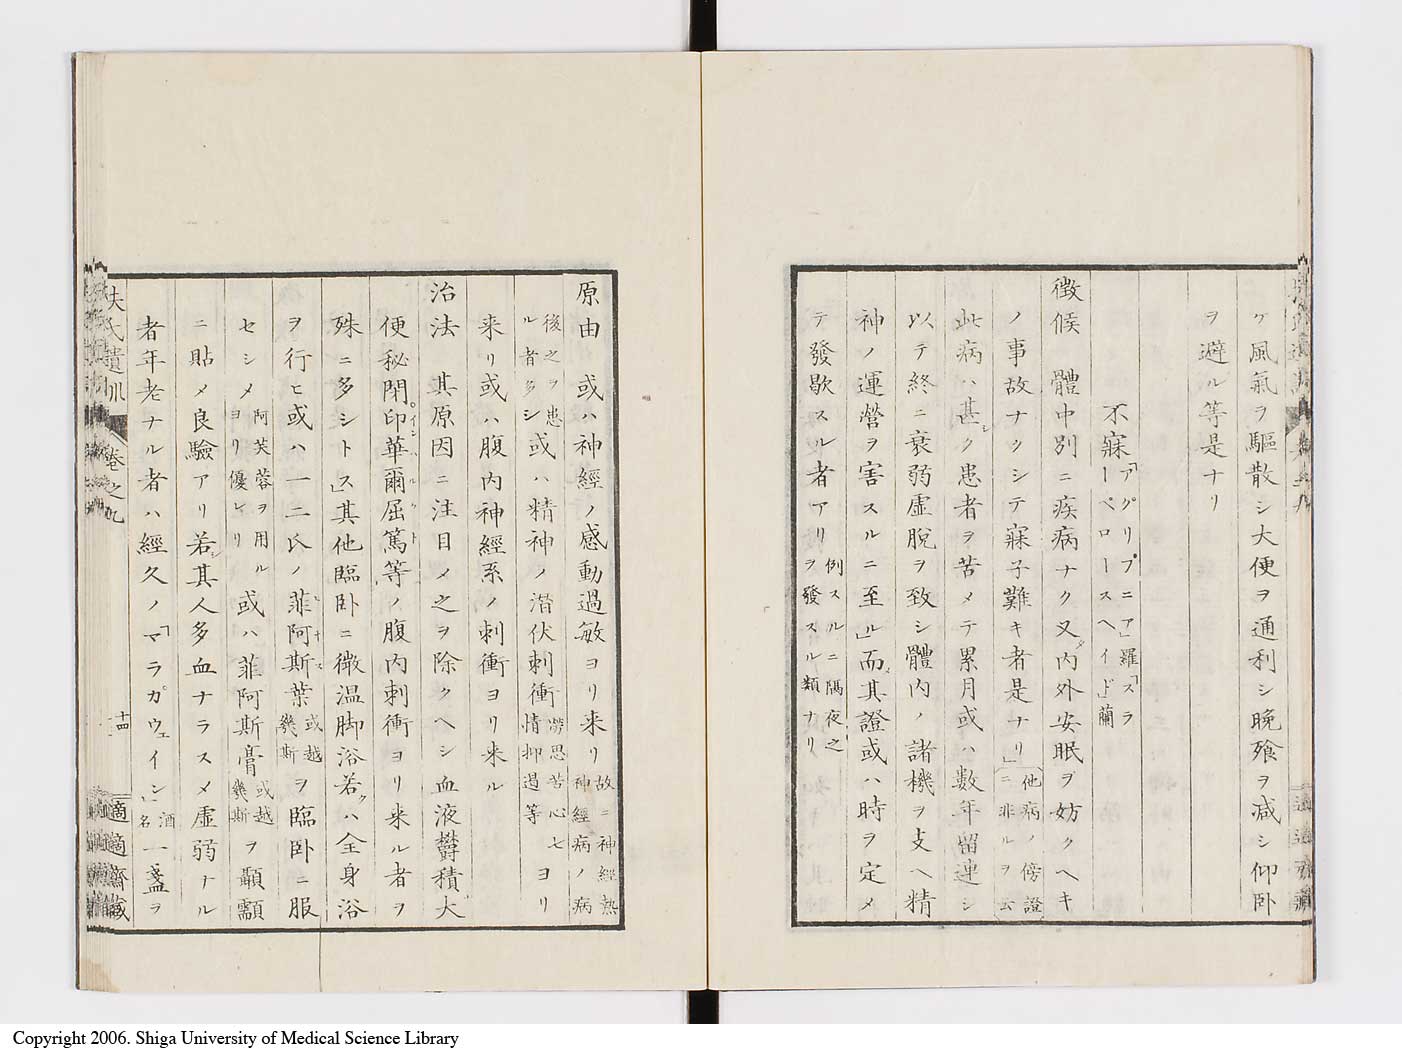 ケ風氣ヲ驅散シ大便ヲ通利シ晩飱ヲ減シ仰卧
ヲ避ル等是ナリ
不寐「アグリプニア」羅「スラーペロースヘイド」蘭
徴候 體中別ニ疾病ナク又内外安眠ヲ妨クヘキ
ノ事故ナクシテ寐子難キ者是ナリ」他病ノ傍證ニ非ルヲ云
此病ハ甚シク患者ヲ苦メテ累月或ハ數年留連シ
以テ終ニ衰弱虚脱ヲ致シ體内ノ諸機ヲ支ヘ精
神ノ運營ヲ害スルニ至ル」而メ其證或ハ時ヲ定メ
テ發歇スル者アリ例スルニ隔夜之ヲ發スル類ナリ
原由 或ハ神經ノ感動過敏ヨリ来リ故ニ神經熱神經病ノ病
後之ヲ患ル者多シ或ハ精神ノ潜伏刺衝勞思苦心七情抑遏等ヨリ
来リ或ハ腹内神經系ノ刺衝ヨリ来ル
治法 其原因ニ注目メ之ヲ除クヘシ血液欝積大
便秘閉印華爾屈篤等ノ腹内刺衝ヨリ来ル者ヲ
殊ニ多シトス」其他臨卧ニ微温脚浴若クハ全身浴
ヲ行ヒ或ハ一二氏ノ菲阿斯葉或越幾斯ヲ臨卧ニ服
セシメ阿芙蓉ヲ用ルヨリ優レリ或ハ菲阿斯膏或越幾斯ヲ顳顬
ニ貼メ良驗アリ若シ其人多血ナラスメ虚弱ナル
者年老ナル者ハ經久ノ「マラガウェイン」酒名一盞ヲ
扶氏遺訓 巻之九 十四 適適齋藏
Copyright 2006. Shiga University of Medical Science Library